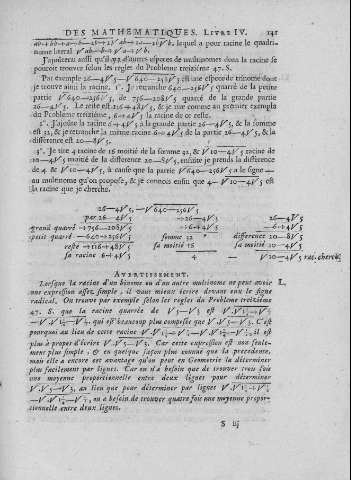 DES MATHEMATIQUES. LIVRE IV. 141
lequel a pour racine le quadri-
nome litteral
J'ajoûterai aussi qu'il y a d'autres especes de multinomes dont la racine se
pouvoit trouver selon les regles du Probleme treiziéme 47. S.
Par exemple 26—4√5—√640—256√5 est une espece de trinome dont
je trouve ainsi la racine. 1°. Je retranche 640—256√5 quarré de la petite
partie √640—256√5, de 756—208√5 quarré de la grande partie
26—4√5, & le reste est 116+48√5, & je tire comme au premier exemple
du Probleme treiziéme, 6+4√5 la racine de ce reste.
2°. J'ajoûte la racine 6+4√5 à la grande partie 26—4√5, & la somme
est 32, & je retranche la même racine 6+4√5 de la partie 26—4√5, & la
difference est 20—8√5.
3°. Je tire 4 racine de 16 moitié de la somme 32, & √10—4√5 racine de
10—4√5 moitié de la difference 20—8√5, ensuite je prends la difference
de 4 & √10—4√5, à cause que la partie √640—256√5 a le signe —
au multinome qu'on propose, & je connois enfin que 4—√10—4√5 est
la racine que je cherche.
26—4√5, —√640—256√5
par 26—4√5 +26—4√5 26—4√5
grand quarré +756—208√5 +6+4√5 —6+4√5
petit quarré —640+256√5 somme 32 * difference 20—8√5
reste +116+48√5 sa moitié 16 sa moitié 10—4√5
sa racine 6+4√5 4 — √10—4√5 rac. cherchée
AVERTISSEMENT.
Lorsque la racine d'un binome ou d'un autre multinome ne peut avoir L.
une expression assez simple, il vaut mieux écrire devant eux le signe
radical. On trouve par exemple selon les regles du Probleme treiziéme
47. S. que la racine quarrée de √5—√3 est
qui est beaucoup plus composée que √√5—√3. C'est
pourquoi au lieu de cette racine il est
plus à propos d'écrire √√5—√3. Car cette expression est non seule-
ment plus simple, & en quelque façon plus connue que la precedente,
mais elle a encore cet avantage qu'on peut en Geometrie la déterminer
plus facilement par lignes. Car on n'a besoin que de trouver trois fois
une moyenne proportionnelle entre deux lignes pour déterminer
√√5—√3, au lieu que pour déterminer par lignes
on a besoin de trouver quatre fois une moyenne propor-
tionnelle entre deux lignes.
S iij